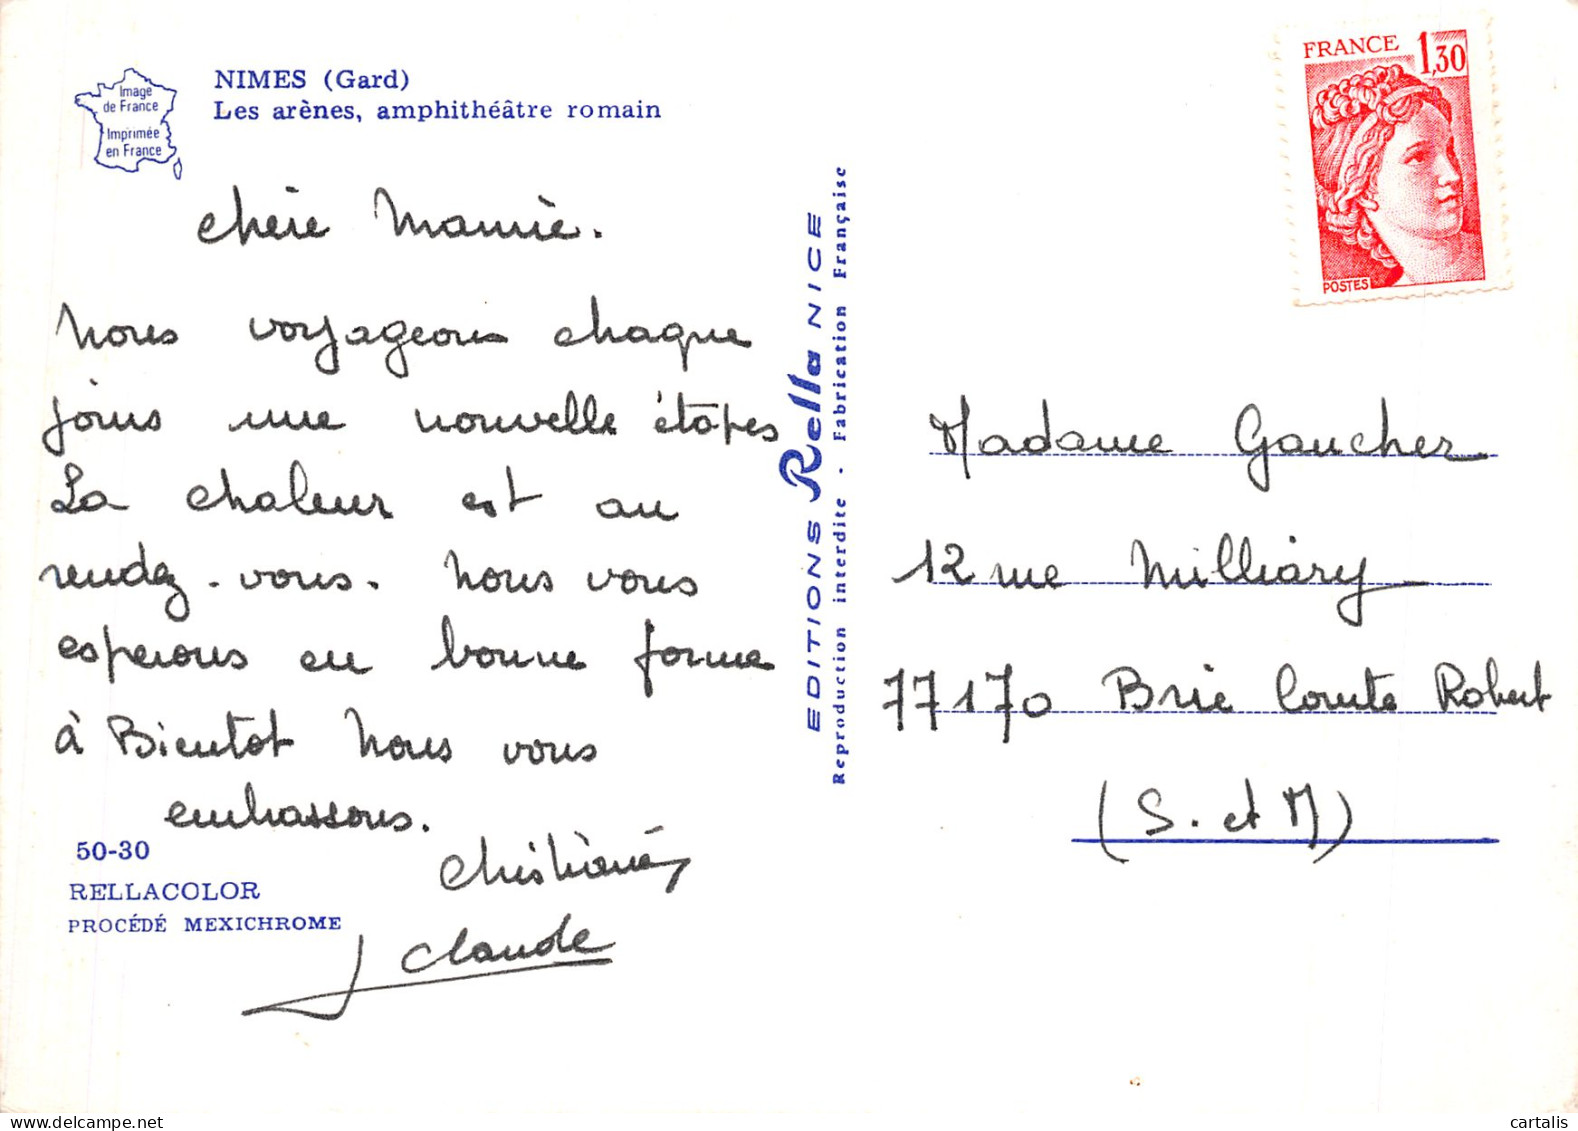 NIMES (Gard)
Les arènes, amphithéâtre romain
Image
de France
Imprimée
en France
chère Mamie.
Nous voyageons chaque
jours une nouvelle étapes
La chaleur est au
rendez-vous. Nous vous
esperons en bonne forme
à Bientot Nous vous
embrassons.
Christiane
J Claude
50-30
RELLACOLOR
PROCÉDÉ MEXICHROME
EDITIONS Rella NICE
Reproduction interdite - Fabrication Française
FRANCE 1,30
POSTES
Madame Gaucher
12 rue Milliary
77170 Brie Comte Robert
(S. et M)
cartalis